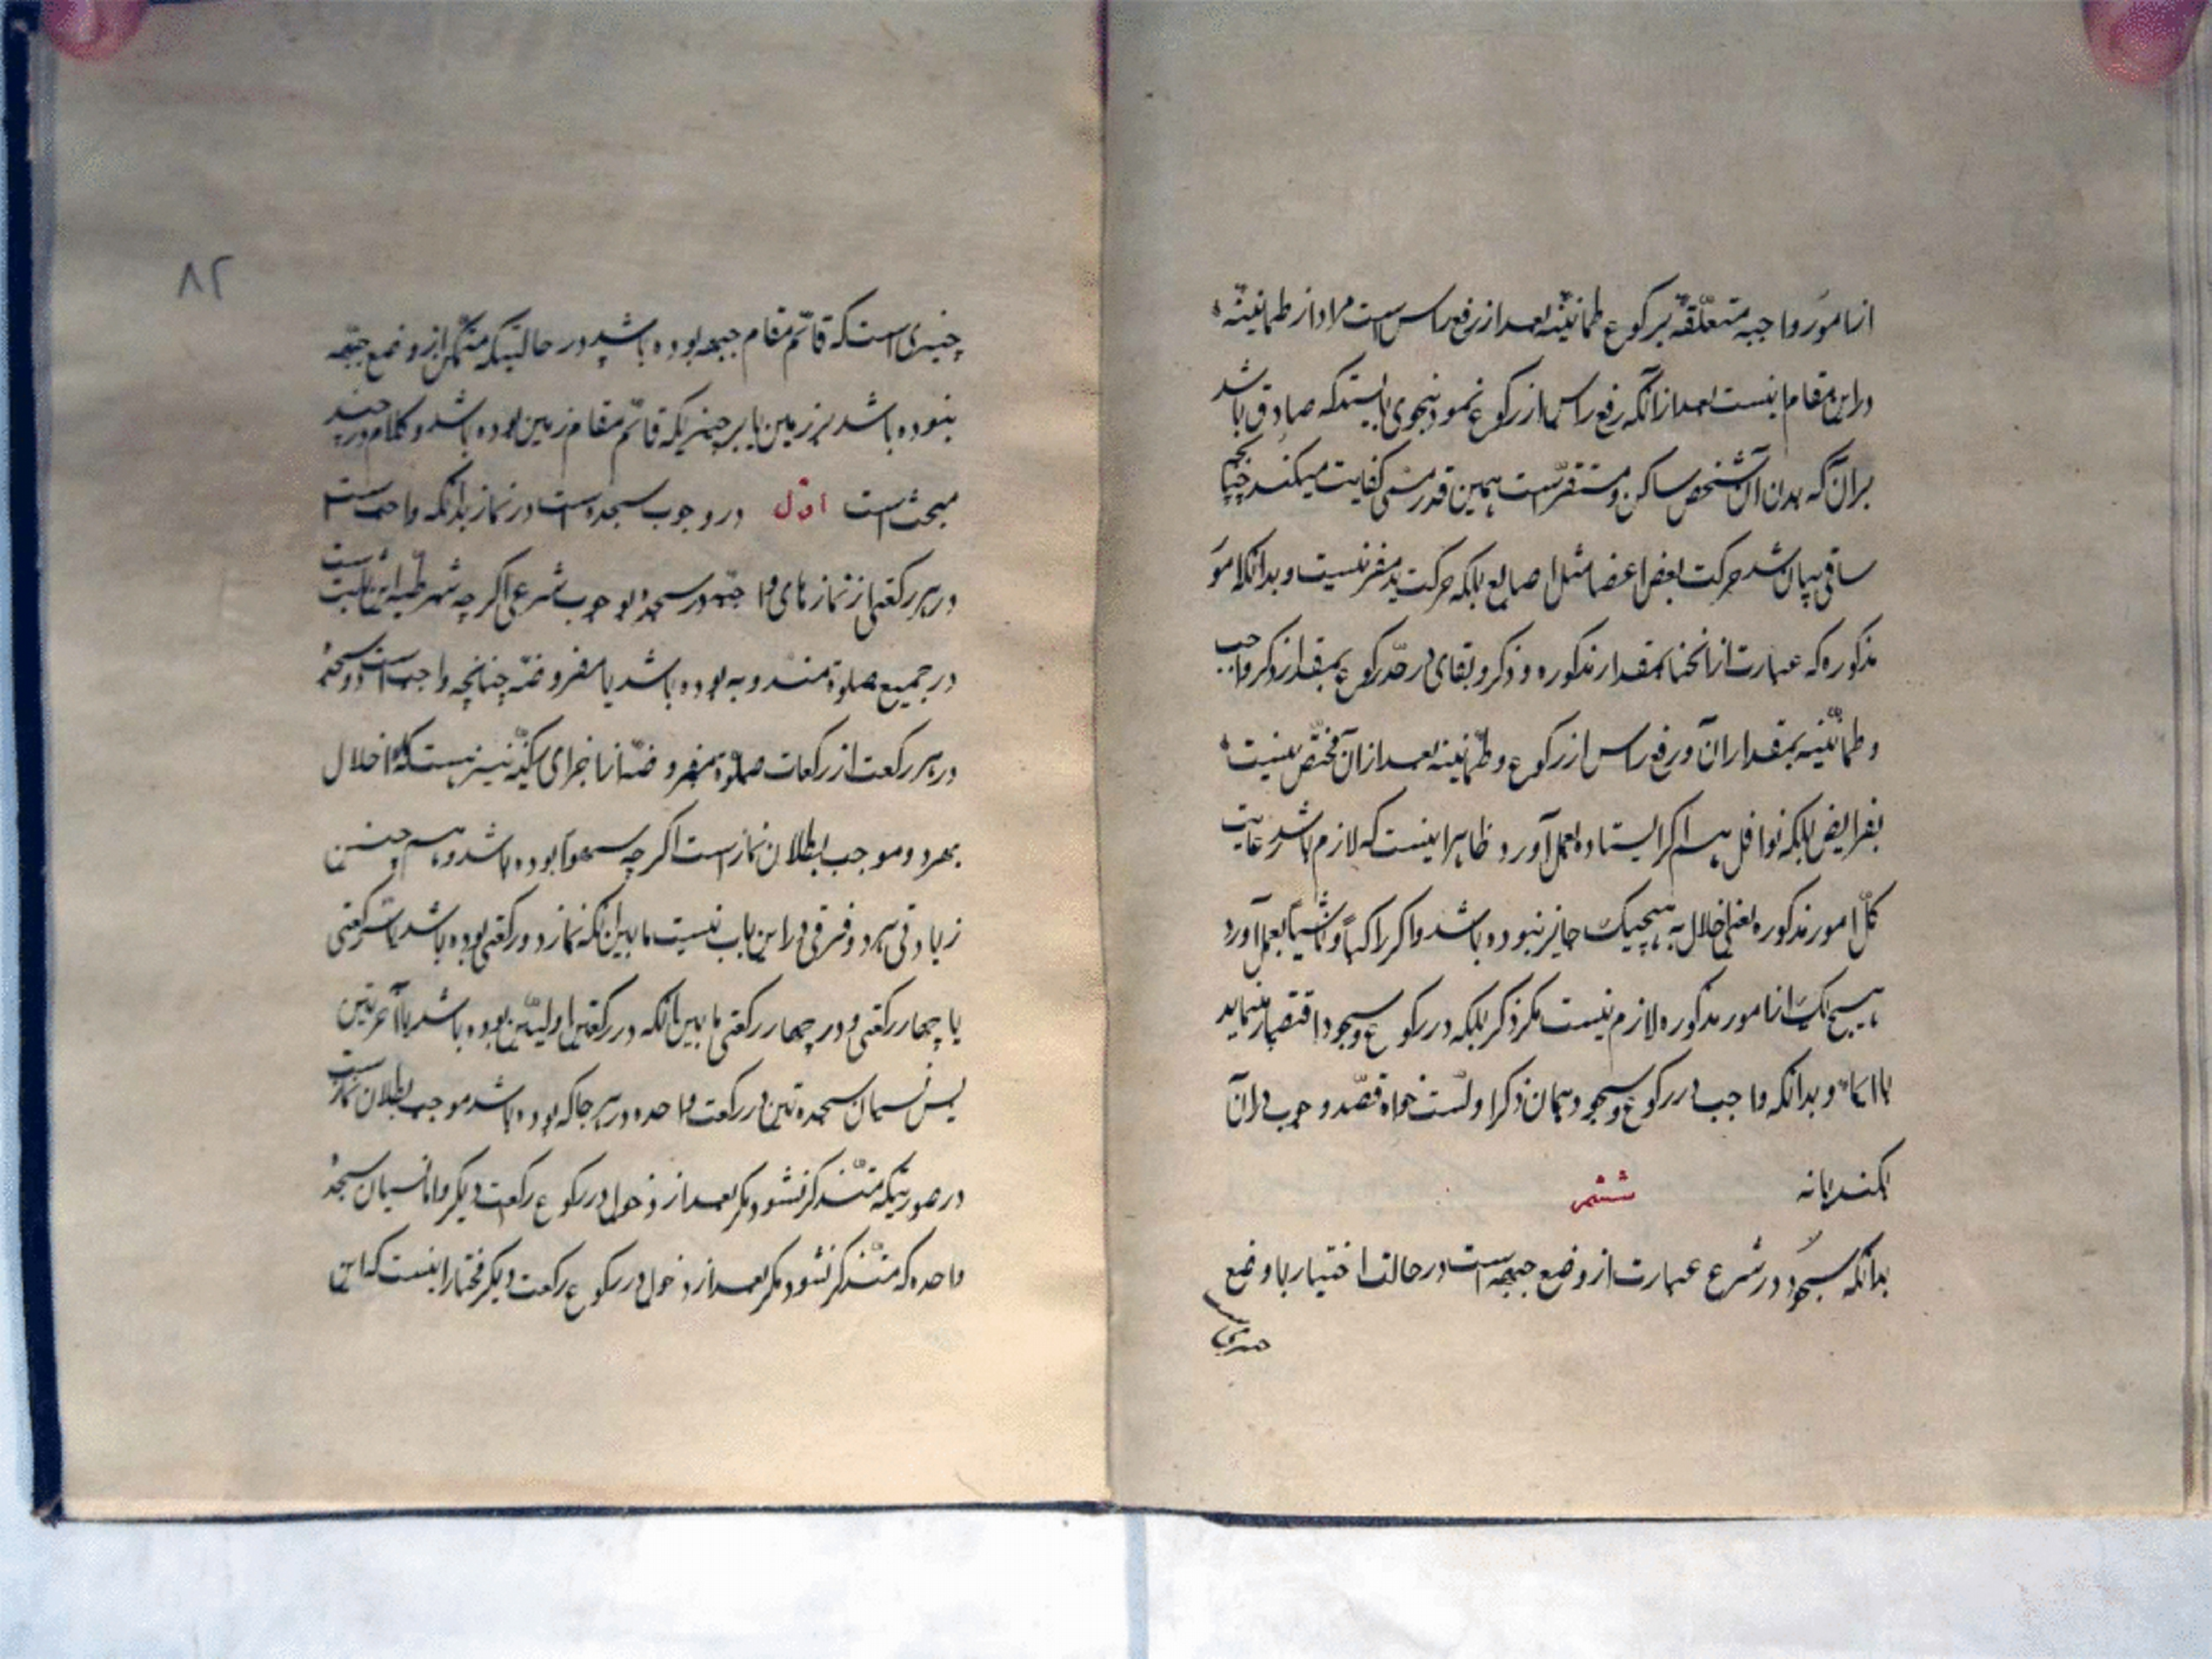 از امور واجبه متعلّقه برکوع طمانینه بعد از رفع راس است مراد از طمانینه
در این مقام اینست بعد از آنکه رفع راس از رکوع نمود بنحوی بایستد که صادق باشد
بر آن که بدن آن شخص ساکن و مستقرّ است همین قدر مسمی کفایت میکند چنانچه
سابق بیان شد حرکت بعض اعضا مثل اصابع بلکه حرکت ید مضر نیست و بدانکه امور
مذکوره که عبارت از انحنا بمقدار مذکوره و ذکر و بقای در حدّ رکوع بمقدار ذکر واجب
و طمانینه بمقدار آن و رفع راس از رکوع و طمانینه بعد از آن مختصّ نیست
بفرایض بلکه نوافل هم اگر ایستاده بعمل آورد ظاهر اینست که لازم باشد رعایت
کلّ امور مذکوره یعنی اخلال به هیچیک جایز نبوده باشد و اگر راکباً و ماشیاً بعمل آورد
هیچیک از امور مذکوره لازم نیست مگر ذکر بلکه در رکوع و سجود اقتصار مینماید
با ایماء و بدانکه واجب در رکوع و سجود همان ذکر اولست خواه قصد وجوب در آن
بکند یا نه ششم
بدانکه سجود در شرع عبارت از وضع جبهه است در حالت اختیار یا وضع
چیزی
۸۲
چیزی است که قائم مقام جبهه بوده باشد در حالتیکه متمکّن از وضع جبهه
نبوده باشد بر زمین یا بر چیزیکه قائم مقام زمین بوده باشد و کلام در چند
مبحث است اوّل در وجوب سجده است در نماز بدانکه واجب است
در هر رکعتی از نمازهای واجبه دو سجده بوجوب شرعی اگر چه شرطیه این ثابت است
در جمیع صلوة مندوبه بوده باشد یا مفروضه چنانچه واجب است دو سجده
در هر رکعت از رکعات صلوة مفروضه از اجزای رکنیّه نیز هست که اخلال
بهر دو موجب بطلان نماز است اگر چه سهواً بوده باشد و هم چنین
زیادتی هر دو و فرقی در این باب نیست ما بین آنکه نماز دو رکعتی بوده باشد یا سه رکعتی
یا چهار رکعتی و در چهار رکعتی ما بین آنکه در رکعتین اولیین بوده باشد یا آخرتین
پس نسیان سجدتین در رکعت واحده در هر جا که بوده باشد موجب بطلان نماز است
در صورتیکه متذکّر نشود مگر بعد از دخول در رکوع رکعت دیگر و اما نسیان سجده
واحده که متذکّر نشود مگر بعد از دخول در رکوع رکعت دیگر مختار اینست که این